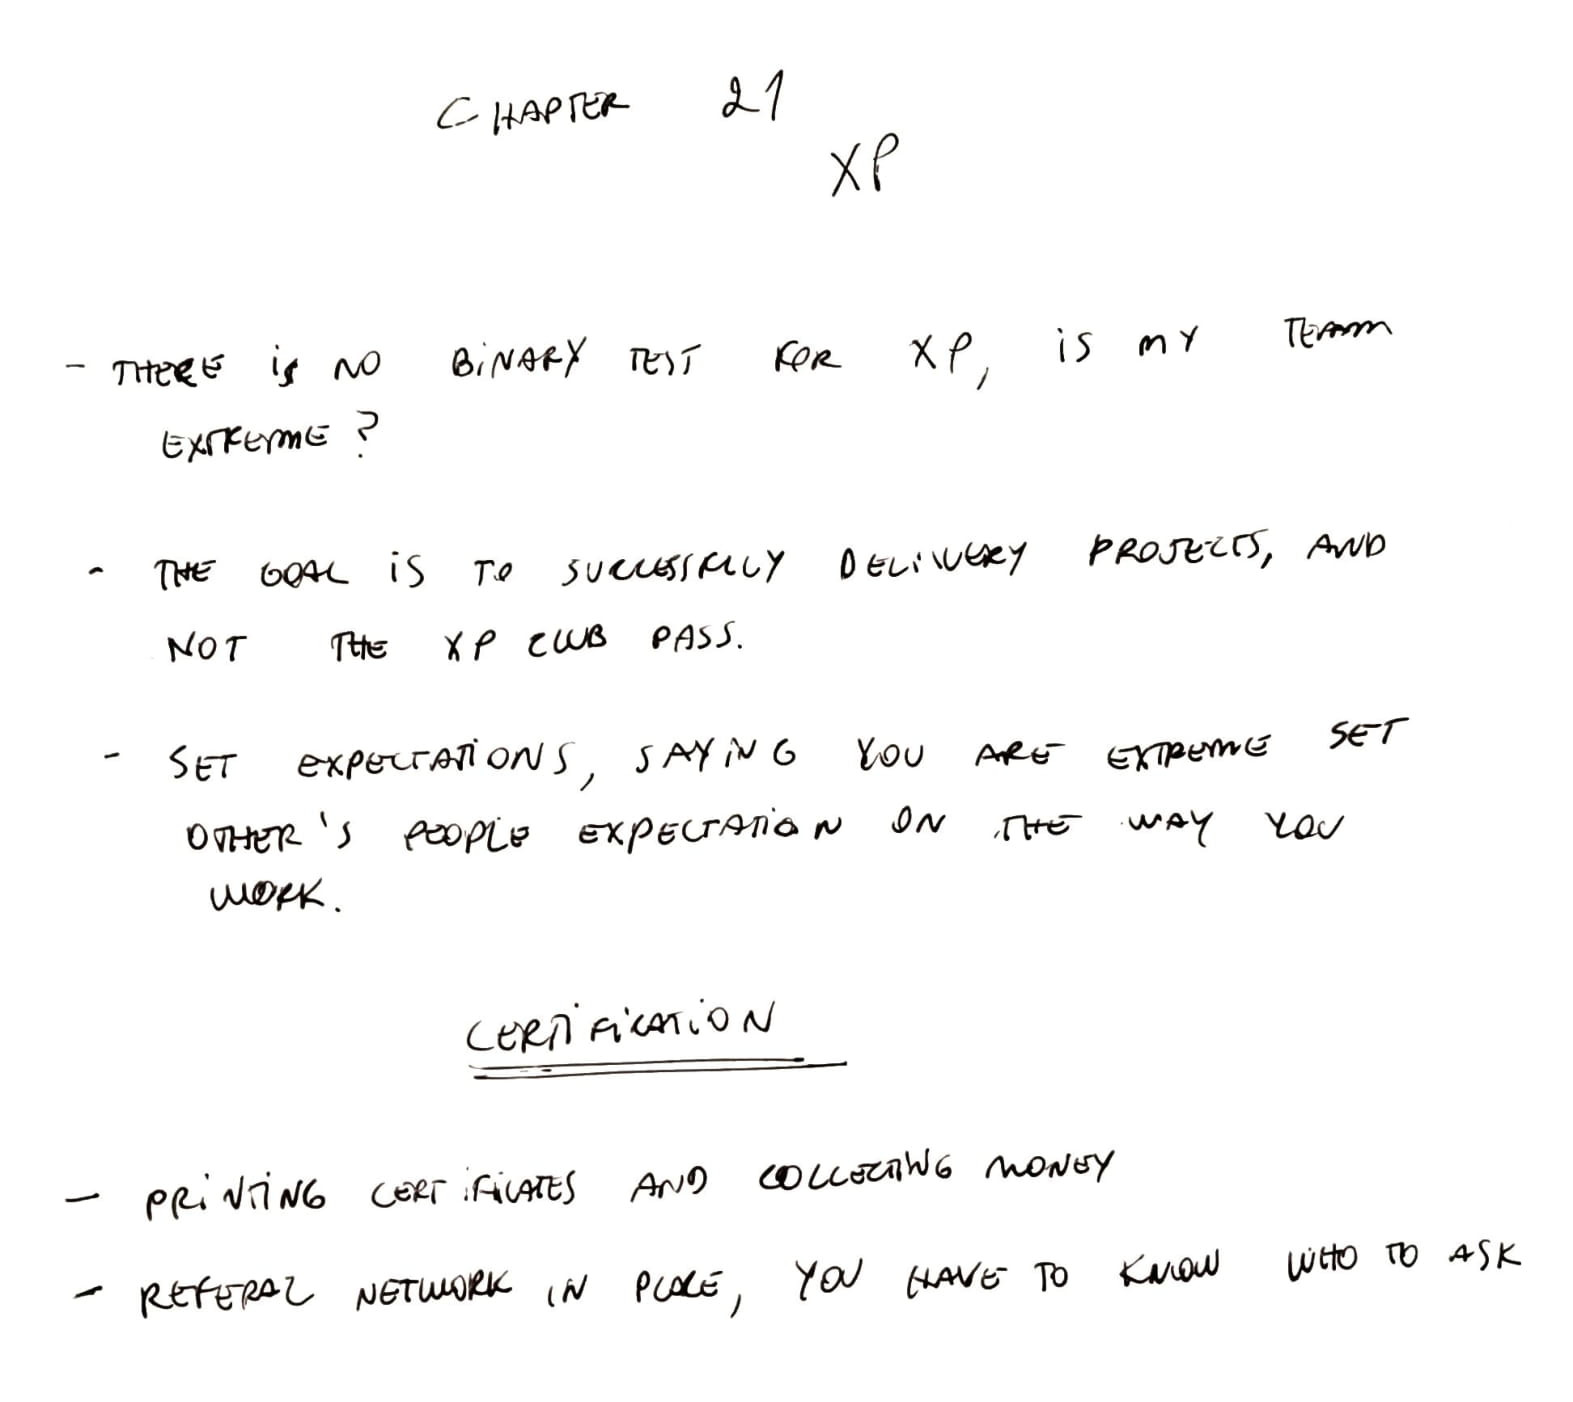 CHAPTER 21
XP
- THERE is NO BINARY TEST FOR XP, is MY TEAM
EXTREME?
- THE GOAL is TO SUCCESSFULLY DELIVERY PROJECTS, AND
NOT THE XP CLUB PASS.
- SET EXPECTATIONS, SAYING YOU ARE EXTREME SET
OTHER'S PEOPLE EXPECTATION ON THE WAY YOU
WORK.
CERTIFICATION
- PRINTING CERTIFICATES AND COLLECTING MONEY
- REFERAL NETWORK IN PLACE, YOU HAVE TO KNOW WHO TO ASK